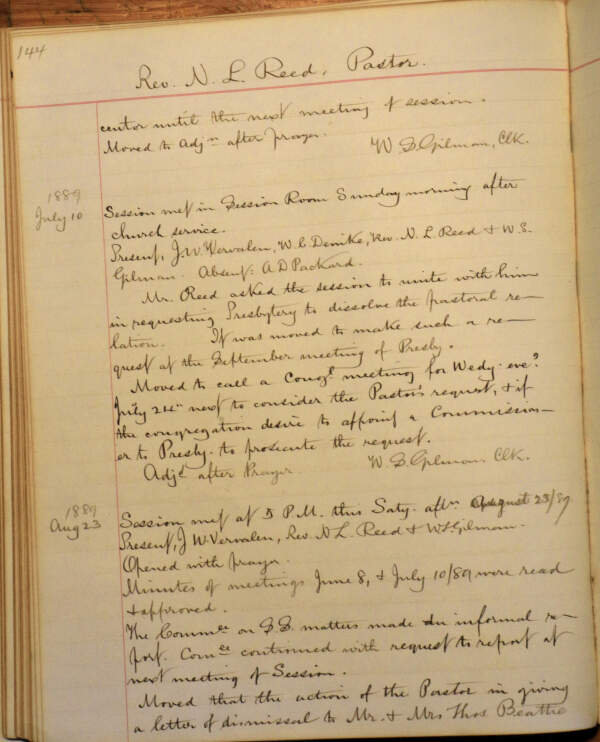 144
Rev. N. L. Reed, Pastor.
centor until the next meeting of session.
Moved to Adjn after prayer.
W S Gilman, Clk.
1889
July 10
Session met in Session Room Sunday morning after
church service.
Present, J. W. Vervalen, W. C. Demike, Rev. N. L. Reed & W. S.
Gilman. Absent: A D Packard.
Mr. Reed asked the session to unite with him
in requesting Presbytery to dissolve the pastoral re-
lation. It was moved to make such a re-
quest at the September meeting of Presby.
Moved to call a Congl meeting for Wedy. eveg
July next to consider the Pastor's request, & if
the congregation desire to appoint a Commission-
er to Presby. to prosecute the request.
Adjd after Prayer.
W. S. Gilman Clk.
1889
Aug 23
Session met at 5 P.M. this Saty. aftn August 23/89
Present, J W. Vervalen, Rev. N L. Reed & W S. Gilman.
Opened with prayer.
Minutes of meetings June 8, & July 10/89 were read
& approved.
The Commee on S. S. matters made an informal re-
port. Comee continued with request to report at
next meeting of Session.
Moved that the action of the Pastor in giving
a letter of dismissal to Mr. & Mrs Thos Beattie